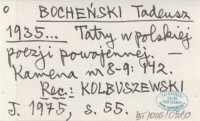 o BOCHEŃSKI Tadeusz
1935... Tatry w polskiej
poezji powojennej. –
Kamena nr 8-9: 142.
Rec.: KOLBUSZEWSKI
J. 1975, s. 55.